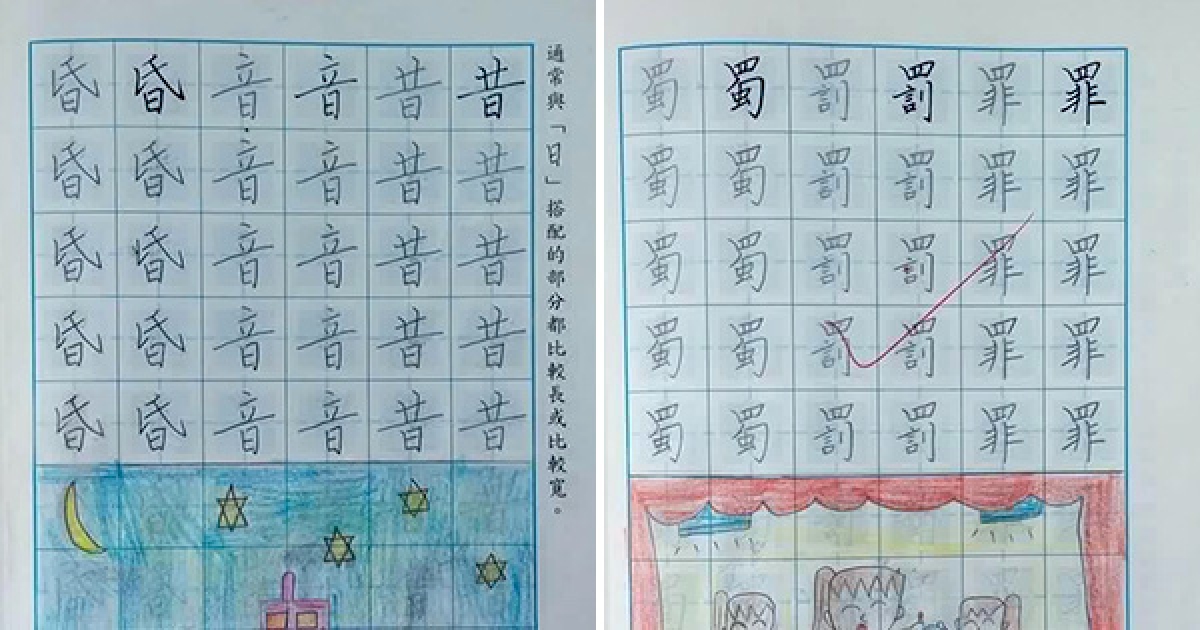 昏昏音音昔昔
昏昏音音昔昔
昏昏音音昔昔
昏昏音音昔昔
昏昏音音昔昔
通常與「日」搭配的部分都比較長或比較寬。
蜀蜀罰罰罪罪
蜀蜀罰罰罪罪
蜀蜀罰罰罪罪
蜀蜀罰罰罪罪
蜀蜀罰罰罪罪